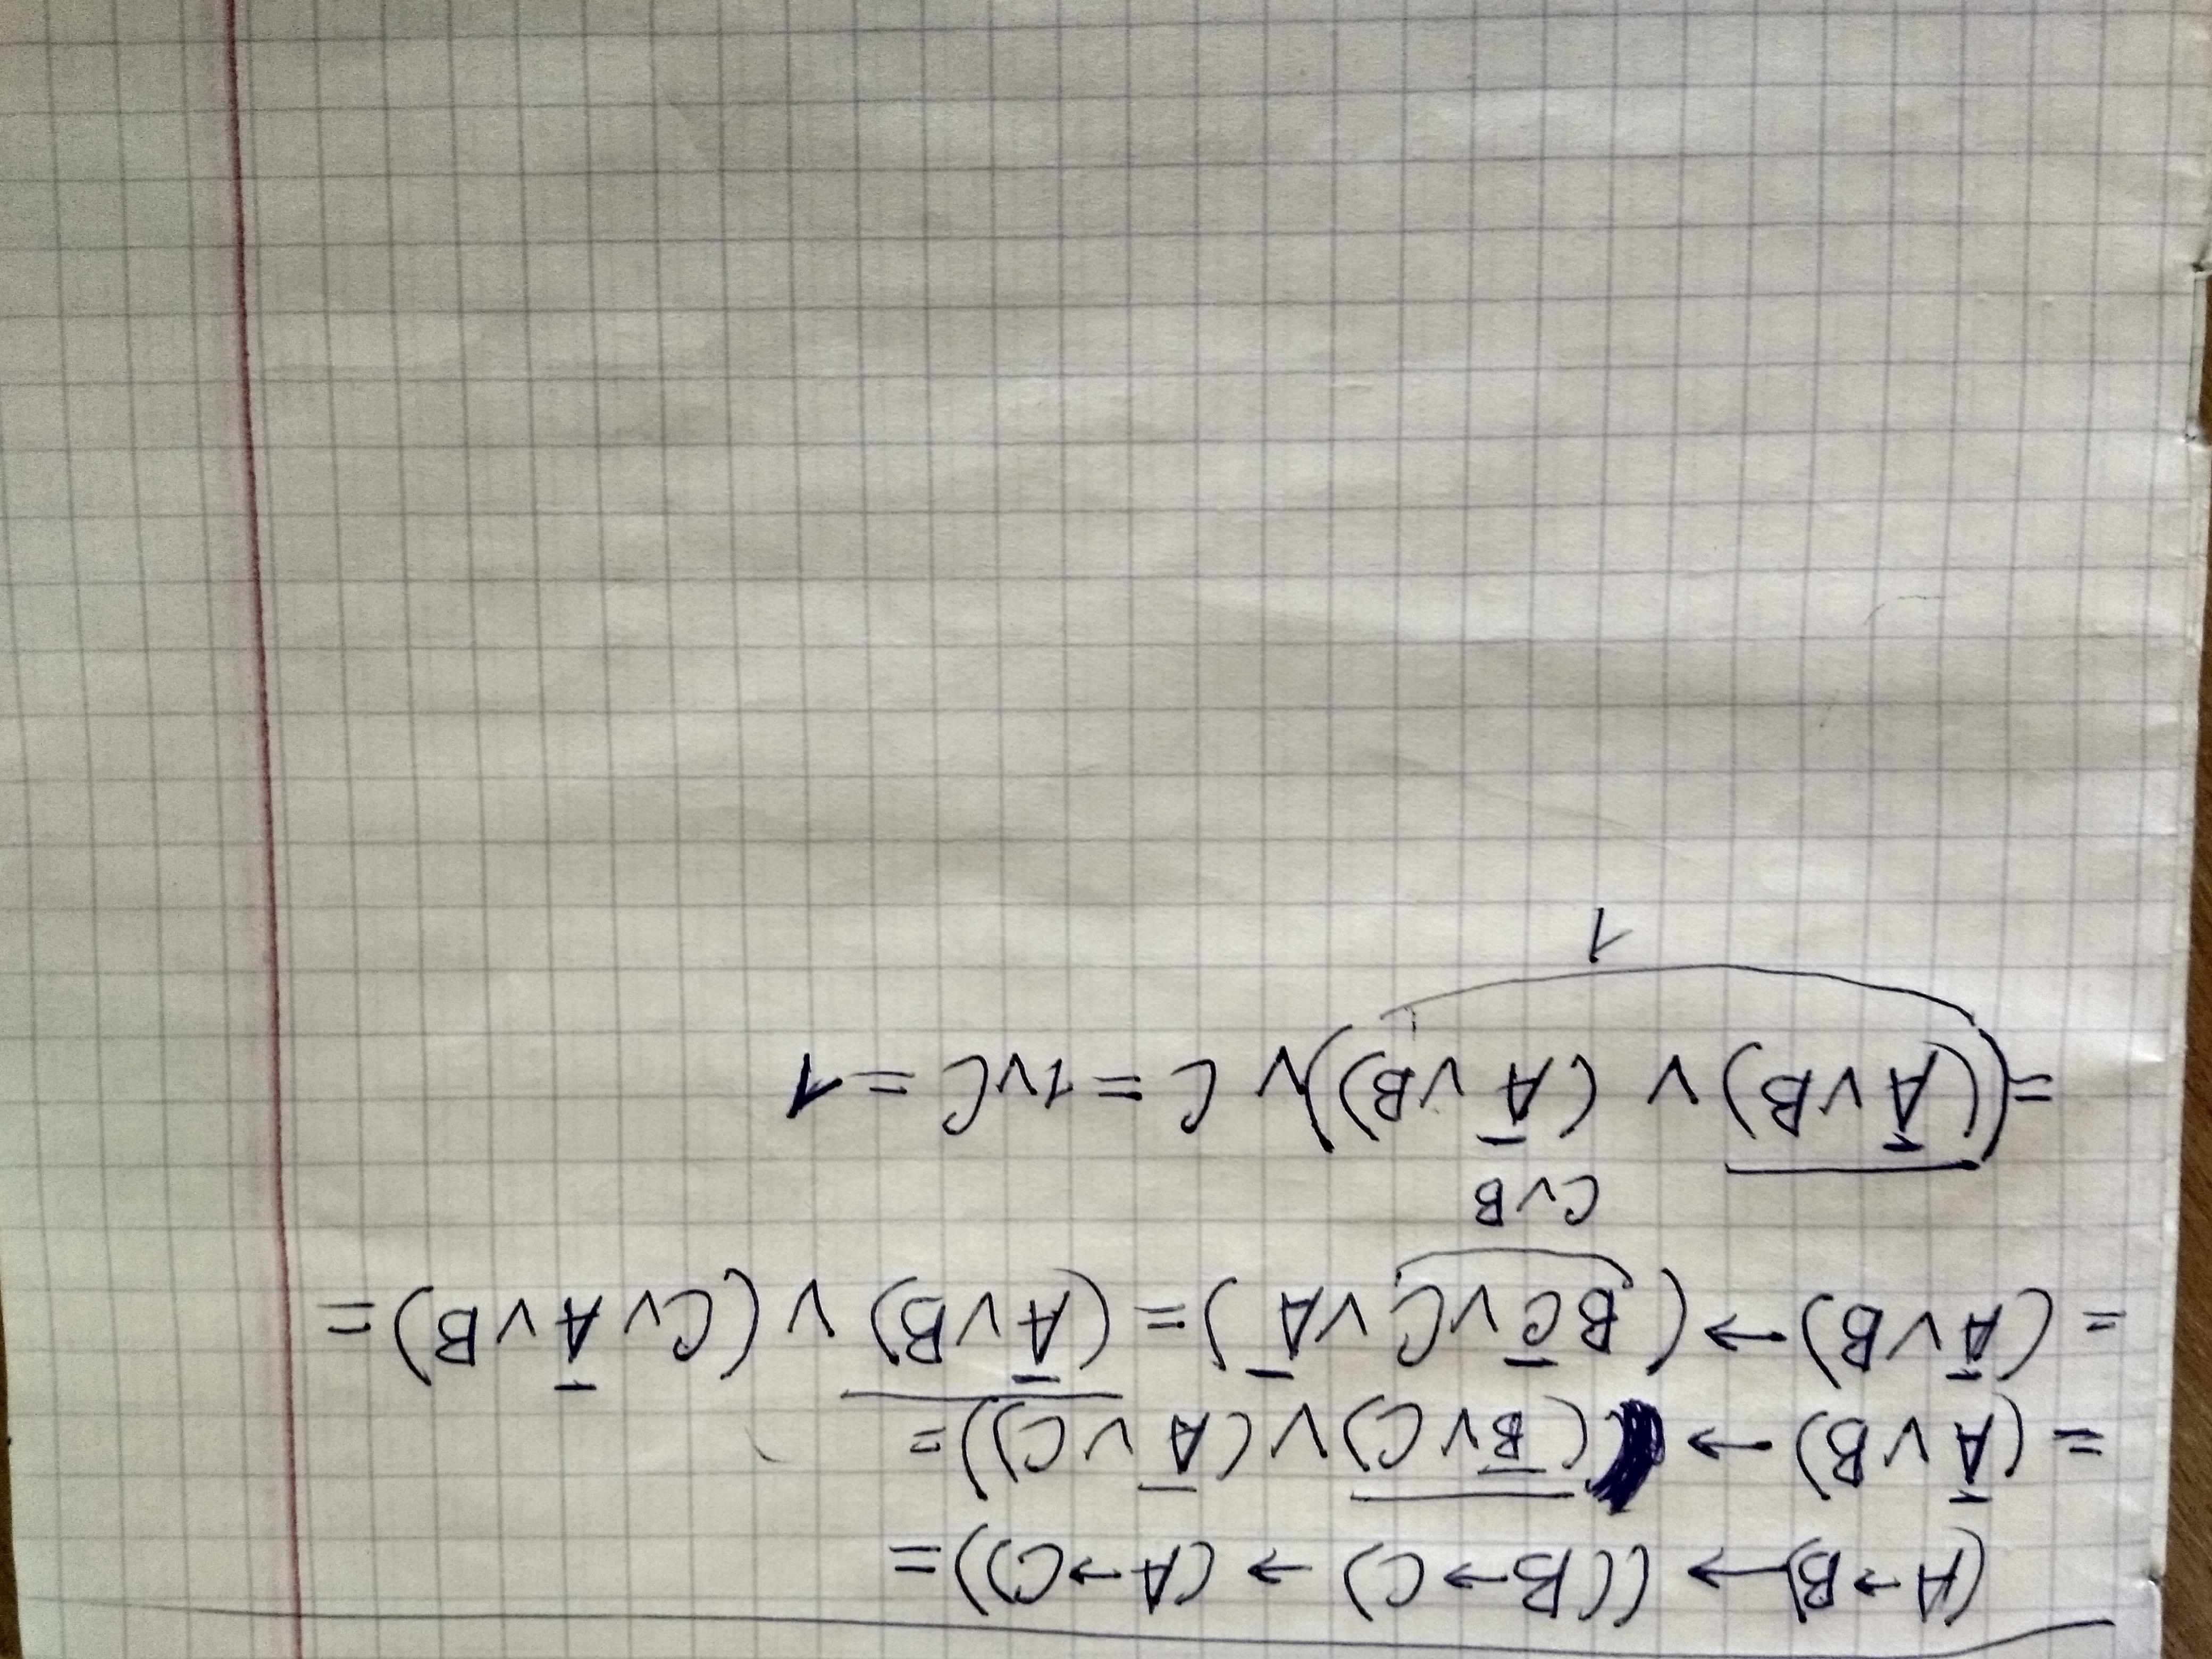 (A→B)→((B→C)→(A→C))=
=(A̅∨B)→(\overline{(B̅∨C)}∨(A̅∨C))=
=(A̅∨B)→(BC̅∨C∨A̅)=\overline{(A̅∨B)}∨(C∨A̅∨B)=
C∨B
=(\overline{(A̅∨B)}∨(A̅∨B))∨C=1∨C=1
1